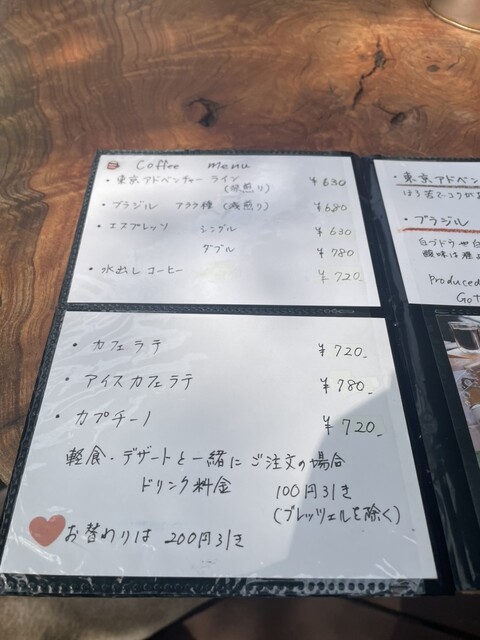 Coffee menu
・東京アドベンチャーライン
(深煎り) ¥630
・ブラジル アララ種 (浅煎り) ¥680
・エスプレッソ シングル ¥630
ダブル ¥780
・水出しコーヒー ¥720_
・カフェラテ ¥720_
・アイスカフェラテ ¥780_
・カプチーノ ¥720_
軽食・デザートと一緒にご注文の場合
ドリンク料金 100円引き
(ブレッツェルを除く)
お替わりは 200円引き
・東京アドベン
ほろ苦さ、コクが
・ブラジル
白ブドウや白
酸味は
Produced
Got